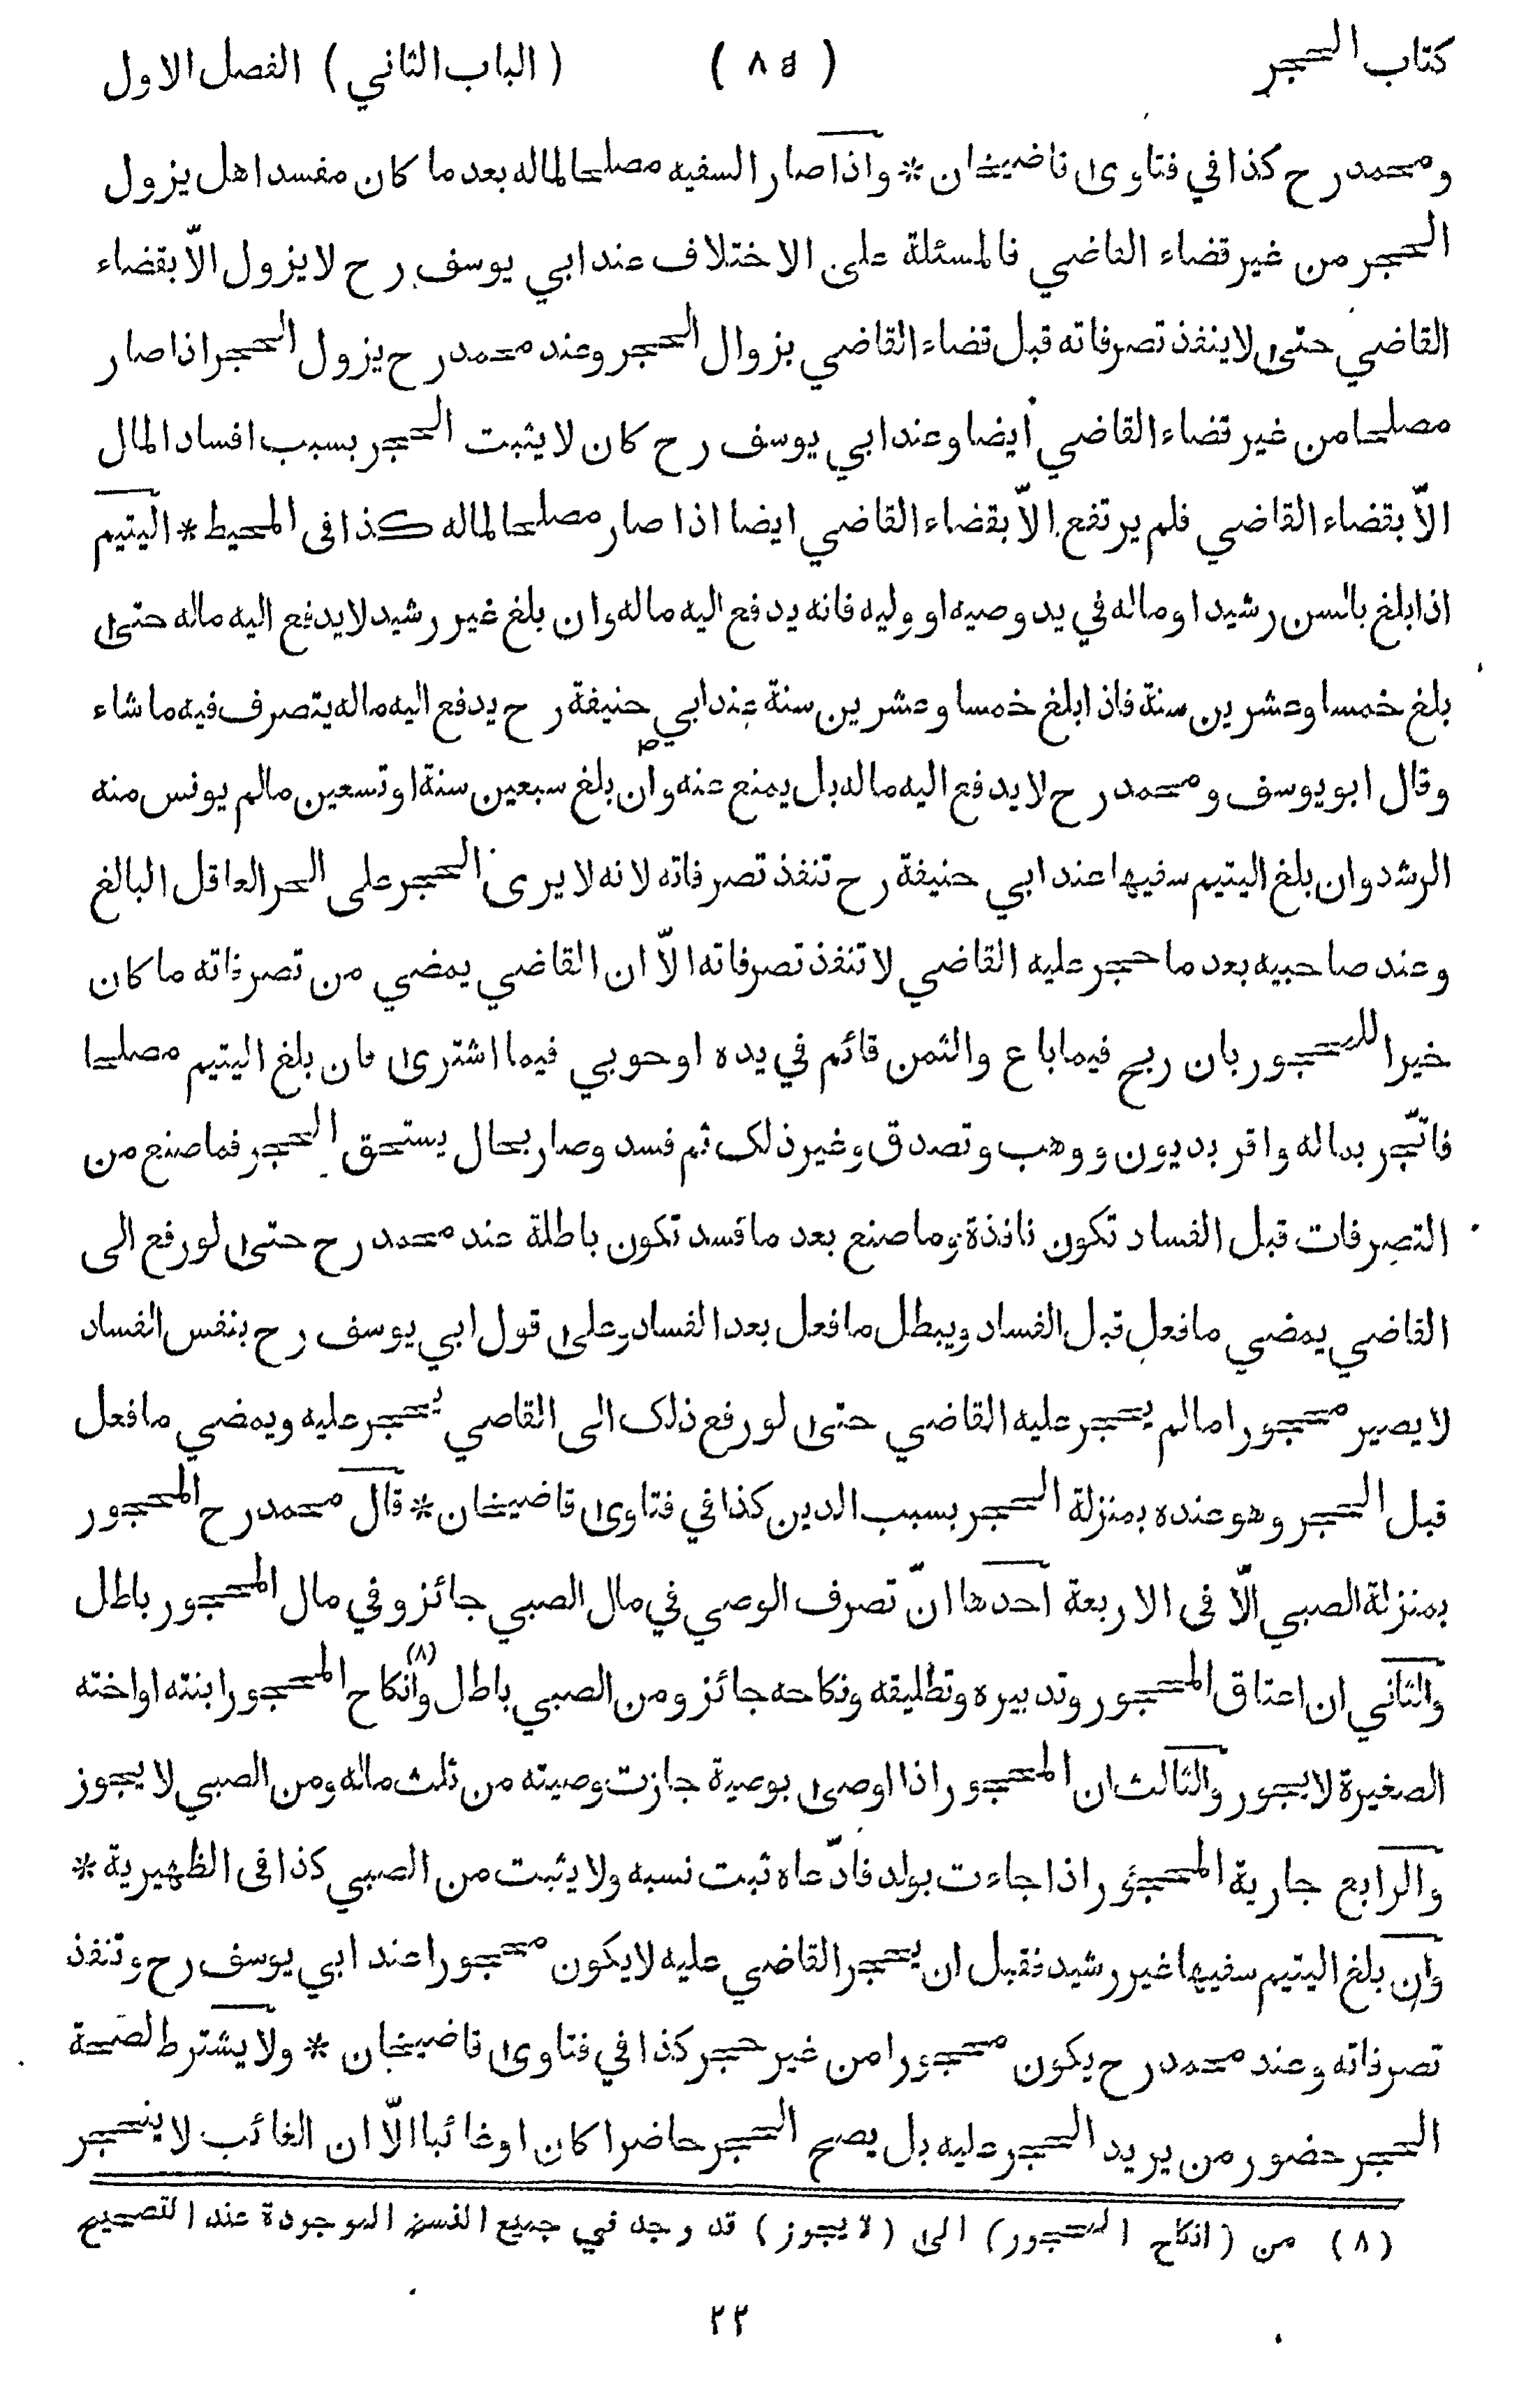 كتاب الحجر (٨٥) (الباب الثاني) الفصل الاول
ومحمد رح كذا في فتاوى قاضيخان * واذا صار السفيه مصلحا لماله بعد ما كان مفسدا هل يزول
الحجر من غير قضاء القاضي فالمسئلة على الاختلاف عند ابي يوسف رح لا يزول الاّ بقضاء
القاضي حتى لا ينفذ تصرفاته قبل قضاء القاضي بزوال الحجر وعند محمد رح يزول الحجر اذا صار
مصلحا من غير قضاء القاضي ايضا وعند ابي يوسف رح كان لا يثبت الحجر بسبب افساد المال
الاّ بقضاء القاضي فلم يرتفع الاّ بقضاء القاضي ايضا اذا صار مصلحا لماله كذا فى المحيط * اليتيم
اذا بلغ بالسن رشيدا وماله في يد وصيه او وليه فانه يدفع اليه ماله وان بلغ غير رشيد لا يدفع اليه ماله حتى
بلغ خمسا وعشرين سنة فاذا بلغ خمسا وعشرين سنة عند ابي حنيفة رح يدفع اليه ماله يتصرف فيه ما شاء
وقال ابو يوسف ومحمد رح لا يدفع اليه ماله بل يمنع عنه وان بلغ سبعين سنة او تسعين مالم يونس منه
الرشد وان بلغ اليتيم سفيها عند ابي حنيفة رح تنفذ تصرفاته لانه لا يرى الحجر على الحر العاقل البالغ
وعند صاحبيه بعد ما حجر عليه القاضي لا تنفذ تصرفاته الاّ ان القاضي يمضي من تصرفاته ما كان
خيرا للمحجور بان ربح فيما باع والثمن قائم في يده او حوبي فيما اشترى فان بلغ اليتيم مصلحا
فاتّجر بماله واقر بديون ووهب وتصدق وغير ذلك ثم فسد وصار بحال يستحق الحجر فما صنع من
التصرفات قبل الفساد تكون نافذة وما صنع بعد ما فسد تكون باطلة عند محمد رح حتى لو رفع الى
القاضي يمضي ما فعل قبل الفساد ويبطل ما فعل بعد الفساد وعلى قول ابي يوسف رح بنفس الفساد
لا يصير محجورا مالم يحجر عليه القاضي حتى لو رفع ذلك الى القاضي يحجر عليه ويمضي ما فعل
قبل الحجر وهو عنده بمنزلة الحجر بسبب الدين كذا في فتاوى قاضيخان * قال محمد رح المحجور
بمنزلة الصبي الاّ فى الاربعة احدها انّ تصرف الوصي في مال الصبي جائز وفي مال المحجور باطل
والثاني ان اعتاق المحجور وتدبيره وتطليقه ونكاحه جائز ومن الصبي باطل (٨) وانكاح المحجور ابنته او اخته
الصغيرة لا يجور والثالث ان المحجور اذا اوصى بوصية جازت وصيته من ثلث ماله ومن الصبي لا يجوز
والرابع جارية المحجور اذا جاءت بولد فادّعاه ثبت نسبه ولا يثبت من الصبي كذا فى الظهيرية *
وان بلغ اليتيم سفيها غير رشيد فقبل ان يحجر القاضي عليه لا يكون محجورا عند ابي يوسف رح وتنفذ
تصرفاته وعند محمد رح يكون محجورا من غير حجر كذا في فتاوى قاضيخان * ولا يشترط لصحة
الحجر حضور من يريد الحجر عليه بل يصح الحجر حاضرا كان او غائبا الاّ ان الغائب لا ينحجر
(٨) من (انكاح المحجور) الى (لا يجوز) قد وجد في جميع النسخ الموجودة عند التصحيح
٢٢